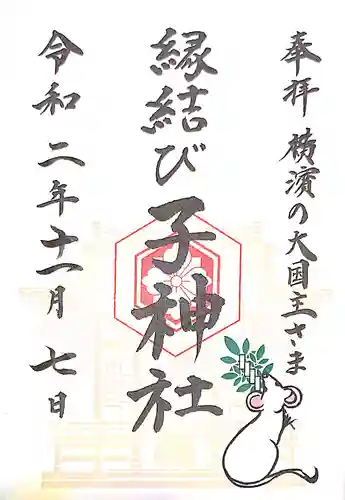 奉拝 横濱の大国主さま
縁結び 子神社
令和二年十一月七日